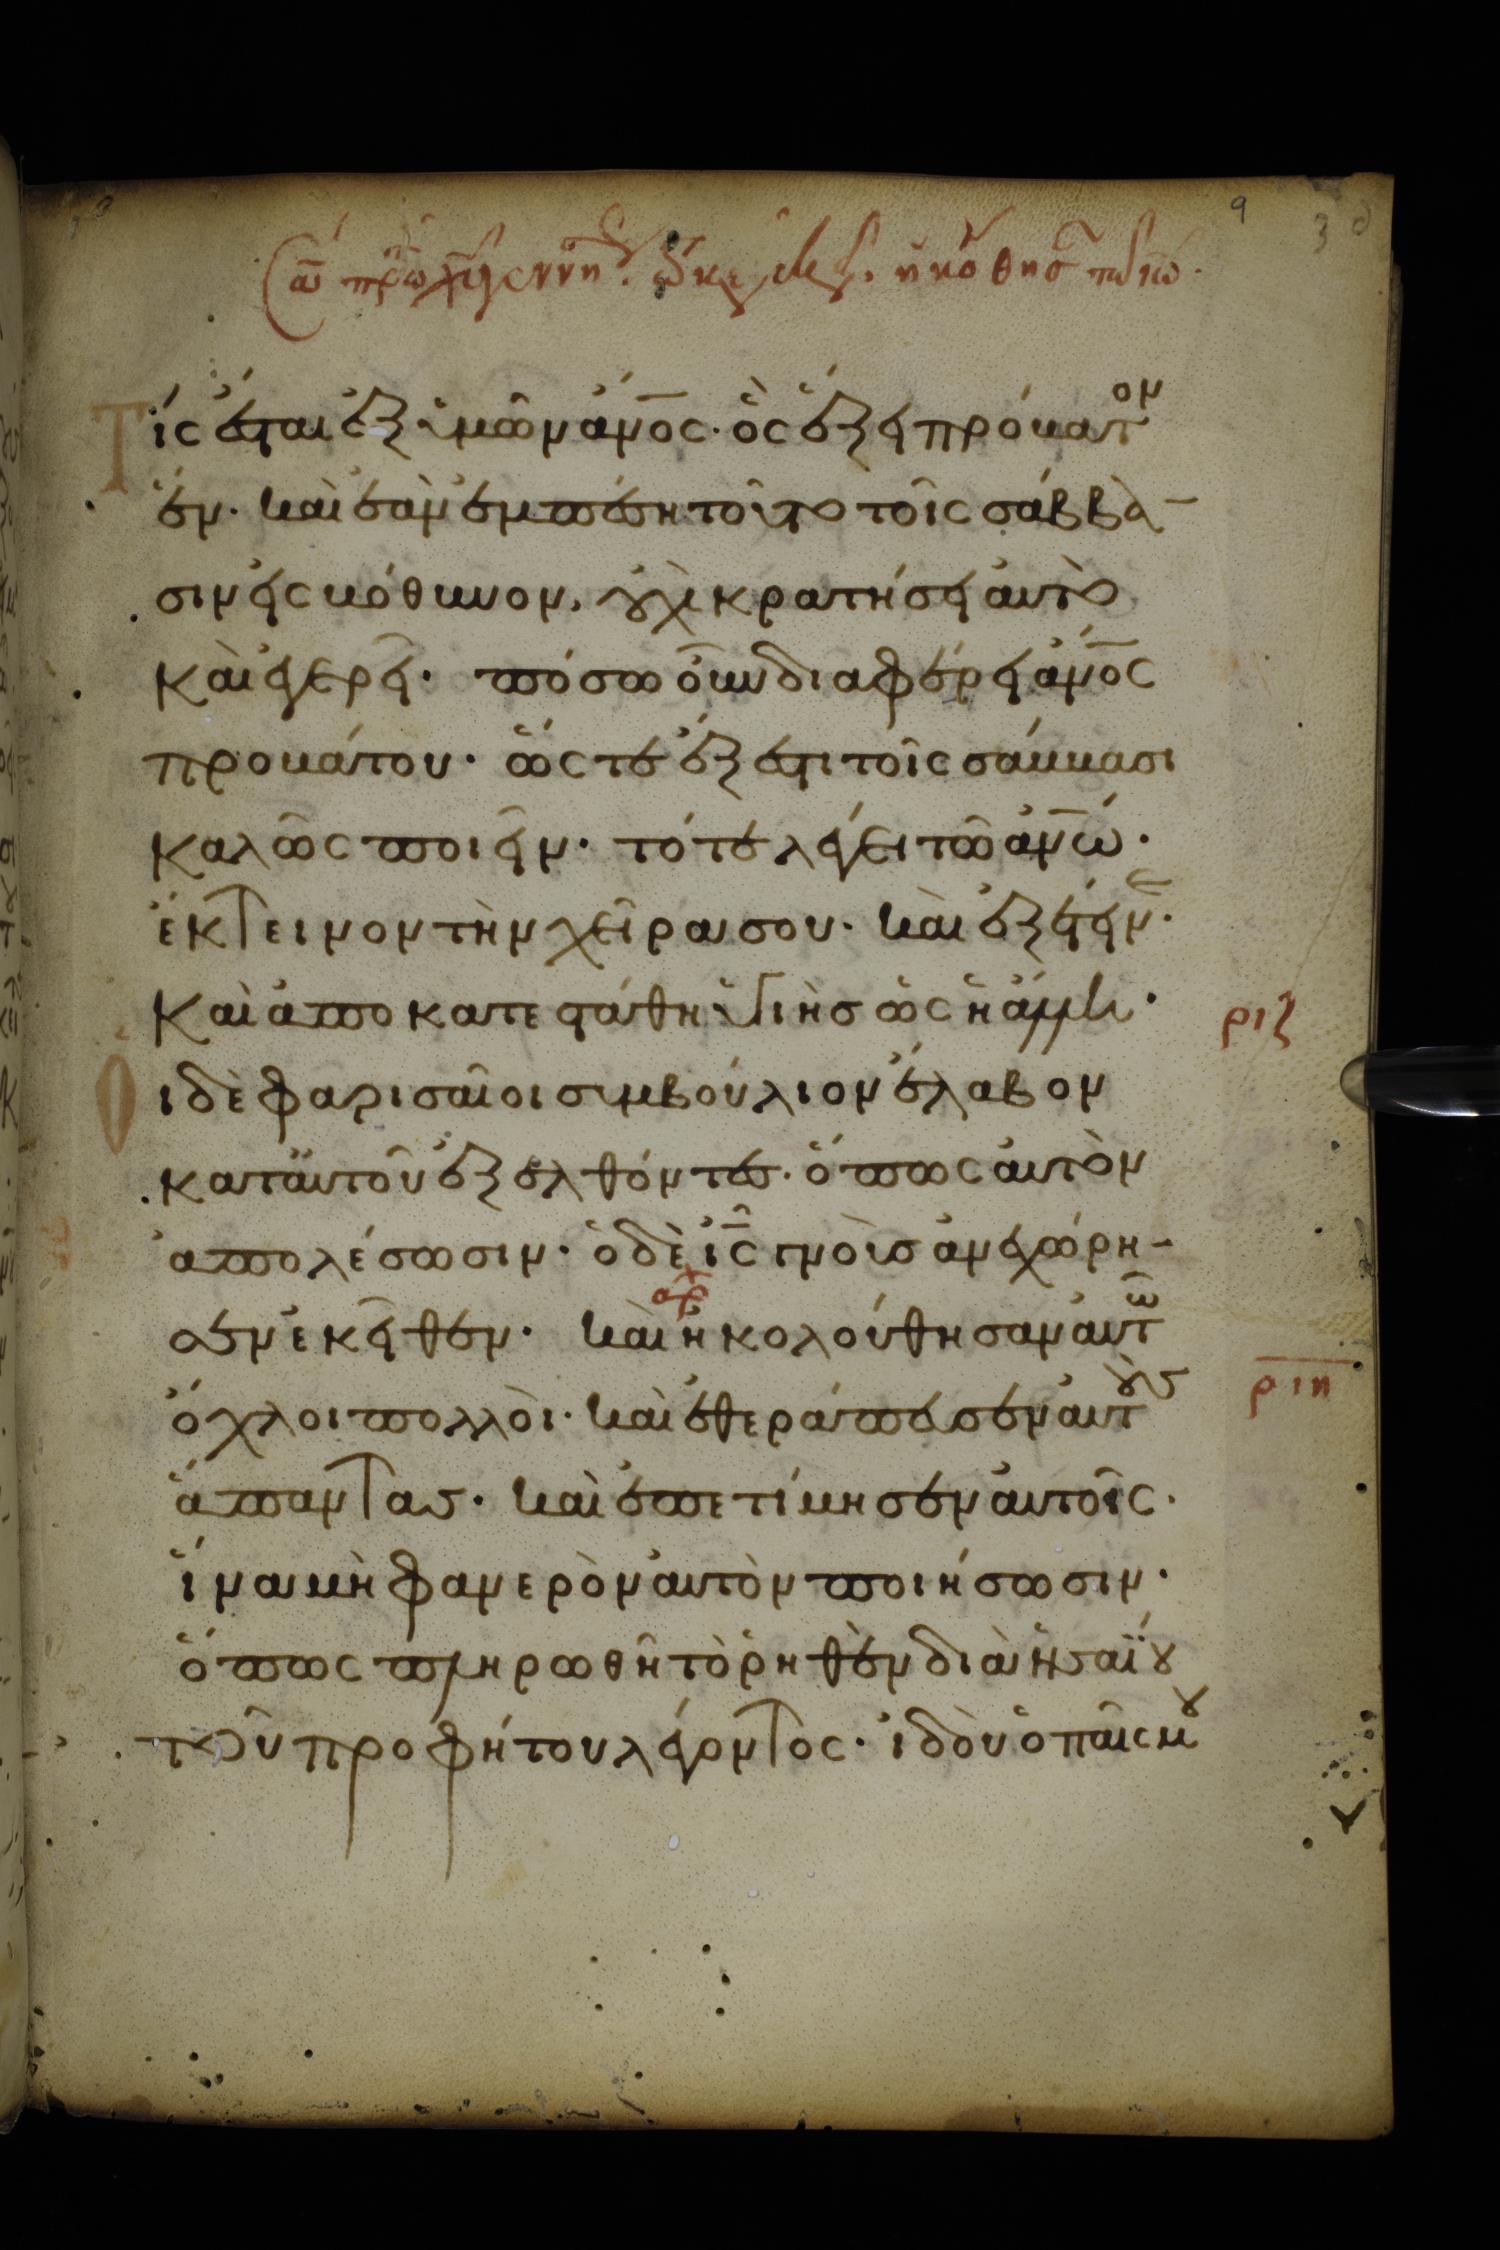 Τίς ἔσται ἐξ ὑμῶν ἄν̅ο̅ς· ὃς ἕξει πρόβατον
ἕν· καὶ ἐὰν ἐμπέση τοῦτο τοῖς σάββα-
σιν εἰς βόθυνον, οὐχὶ κρατήσει αὐτὸ
καὶ ἐγερεῖ· πόσω οὖν διαφέρει ἄν̅ο̅ς
προβάτου· ὥστε ἔξεστι τοῖς σάββασι
καλῶς ποιεῖν· τότε λέγει τῶ ἀν̅ω̅·
ἔκτεινον τὴν χεῖρα σου· καὶ ἐξέτεινε·
Καὶ ἀποκατεστάθη ὑγιὴς ὡς ἡ ἄλλη·
ριζ
Οἱ δὲ φαρισαῖοι συμβούλιον ἔλαβον
κατ αὐτοῦ ἐξελθόντες· ὅπως αὐτὸν
ἀπολέσωσιν· ὁ δὲ ι̅ς̅ γνοὺς ἀνεχώρη-
σεν ἐκεῖθεν· καὶ ἠκολούθησαν αὐτῶ
αρχ
ριη
ὄχλοι πολλοὶ· καὶ ἐθεράπευσεν αὐτοὺς
ἅπαντας· καὶ ἐπετίμησεν αὐτοῖς·
ἵνα μὴ φανερὸν αὐτὸν ποιήσωσιν·
ὅπως πληρωθῆ τὸ ῥηθὲν διὰ ἡσαΐου
τοῦ προφήτου λέγοντος· ἰδοὺ ὁ παῖς μου